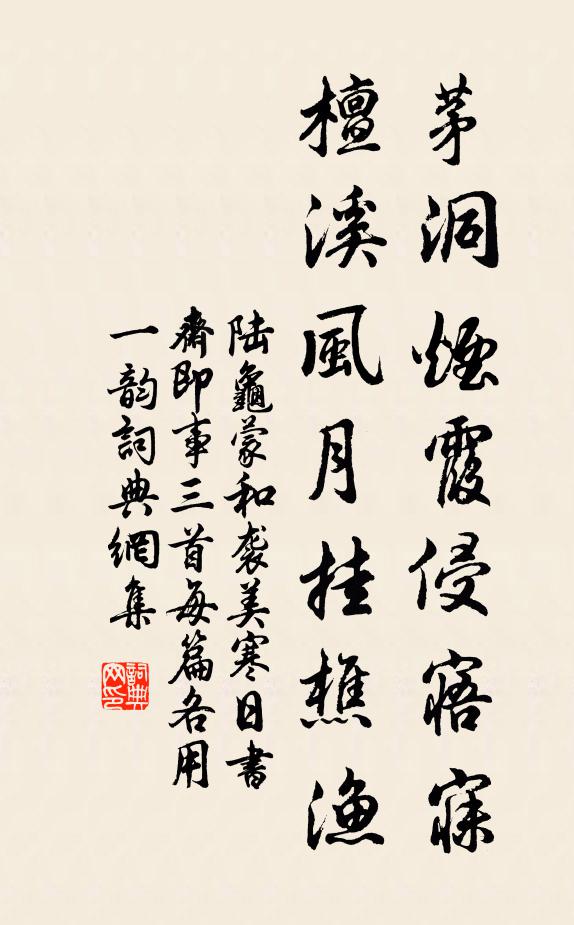 茅洞煙霞侵寤寐
檀溪風月挂樵漁
陆龜蒙和袭美寒日書
齋即事三首每篇各用
一韵詞典網集
詞典
网印